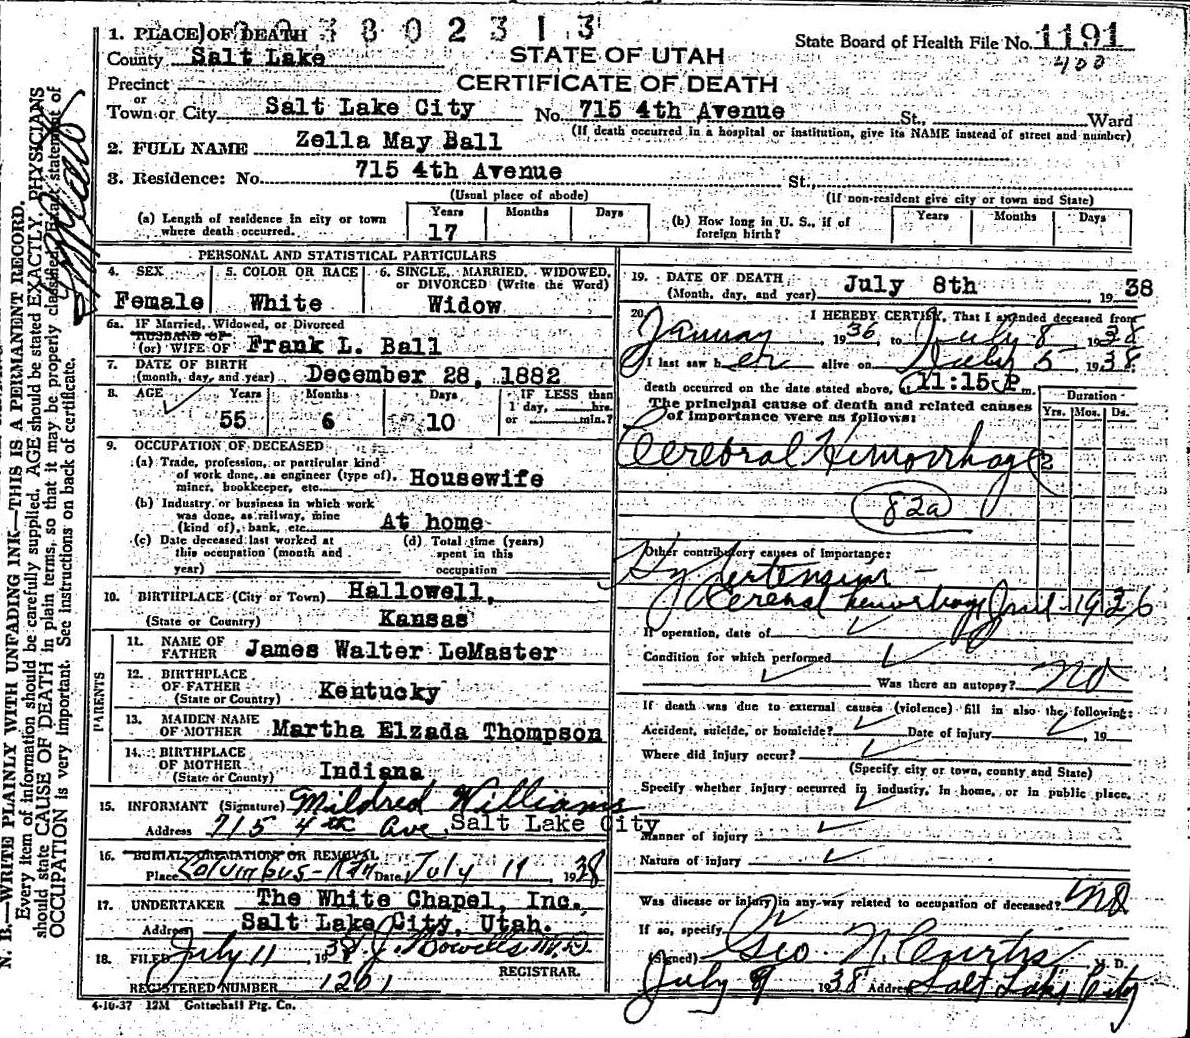 3 8 0 2 3 1 3
1. PLACE OF DEATH
County Salt Lake
Precinct
or
Town or City Salt Lake City
STATE OF UTAH
CERTIFICATE OF DEATH
State Board of Health File No. 1191
400
No. 715 4th Avenue St., Ward
(If death occurred in a hospital or institution, give its NAME instead of street and number)
2. FULL NAME Zella May Ball
3. Residence: No. 715 4th Avenue St.,
(Usual place of abode)
(If non-resident give city or town and State)
(a) Length of residence in city or town
where death occurred.
Years Months Days
17
(b) How long in U. S., if of
foreign birth?
Years Months Days
PERSONAL AND STATISTICAL PARTICULARS
4. SEX
Female
5. COLOR OR RACE
White
6. SINGLE, MARRIED, WIDOWED,
or DIVORCED (Write the Word)
Widow
6a. IF Married, Widowed, or Divorced
HUSBAND OF
(or) WIFE OF Frank L. Ball
7. DATE OF BIRTH
(month, day, and year) December 28, 1882
8. AGE Years Months Days
55 6 10
IF LESS than
1 day, hrs.
or min.?
9. OCCUPATION OF DECEASED
(a) Trade, profession, or particular kind
of work done, as engineer (type of),
miner, bookkeeper, etc. Housewife
(b) Industry or business in which work
was done, as railway, mine
(kind of), bank, etc. At home
(c) Date deceased last worked at
this occupation (month and
year)
(d) Total time (years)
spent in this
occupation
10. BIRTHPLACE (City or Town) Hallowell,
(State or Country) Kansas
PARENTS
11. NAME OF
FATHER James Walter LeMaster
12. BIRTHPLACE
OF FATHER
(State or Country) Kentucky
13. MAIDEN NAME
OF MOTHER Martha Elzada Thompson
14. BIRTHPLACE
OF MOTHER
(State or County) Indiana
15. INFORMANT (Signature) Mildred Williams
Address 715 4th Ave Salt Lake City
16. BURIAL, CREMATION OR REMOVAL
Place Columbus-Kan Date July 11 1938
17. UNDERTAKER The White Chapel, Inc.
Address Salt Lake City, Utah.
18. FILED July 11, 1938 J. Howells M.D.
REGISTRAR.
REGISTERED NUMBER 1201
4-16-37 12M Gottschall Ptg. Co.
19. DATE OF DEATH
(Month, day, and year) July 8th, 1938
20. I HEREBY CERTIFY, That I attended deceased from
January, 1936, to July 8, 1938
I last saw her alive on July 5 1938
death occurred on the date stated above, 11:15 P m.
The principal cause of death and related causes
of importance were as follows:
Duration
Yrs. Mos. Ds.
Cerebral Hemorrhage 2
82a
Other contributory causes of importance:
Hypertension -
Cerebral hemorrhage 1936
If operation, date of
Condition for which performed
Was there an autopsy? no
If death was due to external causes (violence) fill in also the following:
Accident, suicide, or homicide? Date of injury , 19
Where did injury occur?
(Specify city or town, county and State)
Specify whether injury occurred in industry, in home, or in public place.
Manner of injury
Nature of injury
Was disease or injury in any way related to occupation of deceased? no
If so, specify
(Signed) Geo N. Curtis M. D.
July 9 1938 Address Salt Lake City
N. B.—WRITE PLAINLY WITH UNFADING INK—THIS IS A PERMANENT RECORD.
Every item of information should be carefully supplied. AGE should be stated EXACTLY. PHYSICIANS
should state CAUSE OF DEATH in plain terms, so that it may be properly classified. Exact statement of
OCCUPATION is very important. See instructions on back of certificate.